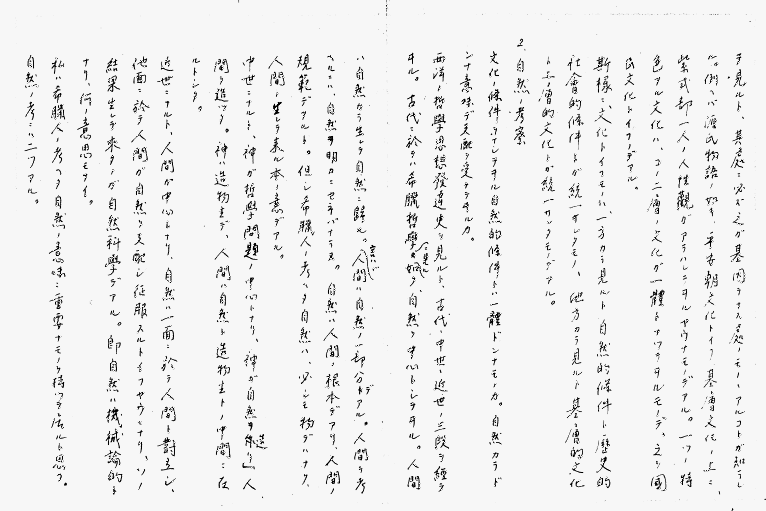 ヲ見ルト、其処ニ必ズ之ガ基因ヲナス処ノモノハアルコトガ知ラレ
ル。例ヘバ源氏物語ノ如キ、平安朝文化トイフ基層文化ノ上ニ、
紫式部一人ノ人性観ガアラハレニヲルヤウナモノデアル。一ツノ特
色アル文化ハ、コノ二層ノ文化ガ一體トナツテヲルモノデ、之ヲ國
民文化トイフノデアル。
斯様ニ、文化トイフモノハ、一方カラ見ルト自然的條件ト歴史的
社會的條件トガ統一サレタモノ、他方カラ見ルト基層的文化
ト上層的文化トガ統一サレタモノデアル。
2. 自然ノ考察
文化ノ條件トナレテヲル自然的條件トハ一體ドンナモノカ。自然カラド
ンナ意味デ支配ヲ受ケテヲルカ。
西洋ノ哲學思想發達史ヲ見ルト、古代、中世、近世ノ三段ヲ經テ
ヰル。古代ニ於テハ希臘哲學ニ見ル如ク、自然ヲ中心トシテヰル。人間
ハ自然カラ生レテ自然ニ歸ル。言ハバ人間ハ自然ノ一部分デアル。人間ヲ考
ヘルニハ、自然ヲ明カニセネバナラヌ。自然ハ人間ノ根本デアリ、人間ノ
規範デアル。但シ希臘人ノ考ヘタ自然ハ、必シモ物デハナク、
人間ノ生レテ來ル本ノ意デアル。
中世ニナルト、神ガ哲學問題ノ中心トナリ、神ガ自然ヲ造リ、人
間ヲ造ツタ。神ハ造物主デ、人間ハ自然ト造物主トノ中間ニ在
ルトシタ。
近世ニナルト、人間ガ中心トナリ、自然ハ一面ニ於テ人間ト對立シ、
他面ニ於テ人間ガ自然ヲ支配シ征服スルトイフヤウニナリ、ソノ
結果生レテ來タノガ自然科學デアル。即自然ハ機械論的ト
ナリ、何ノ意思モナイ。
私ハ希臘人ノ考ヘタ自然ノ意味ニ重要ナモノヲ持ツテ居ルト思フ。
自然ノ考ヘハ二ツアル。